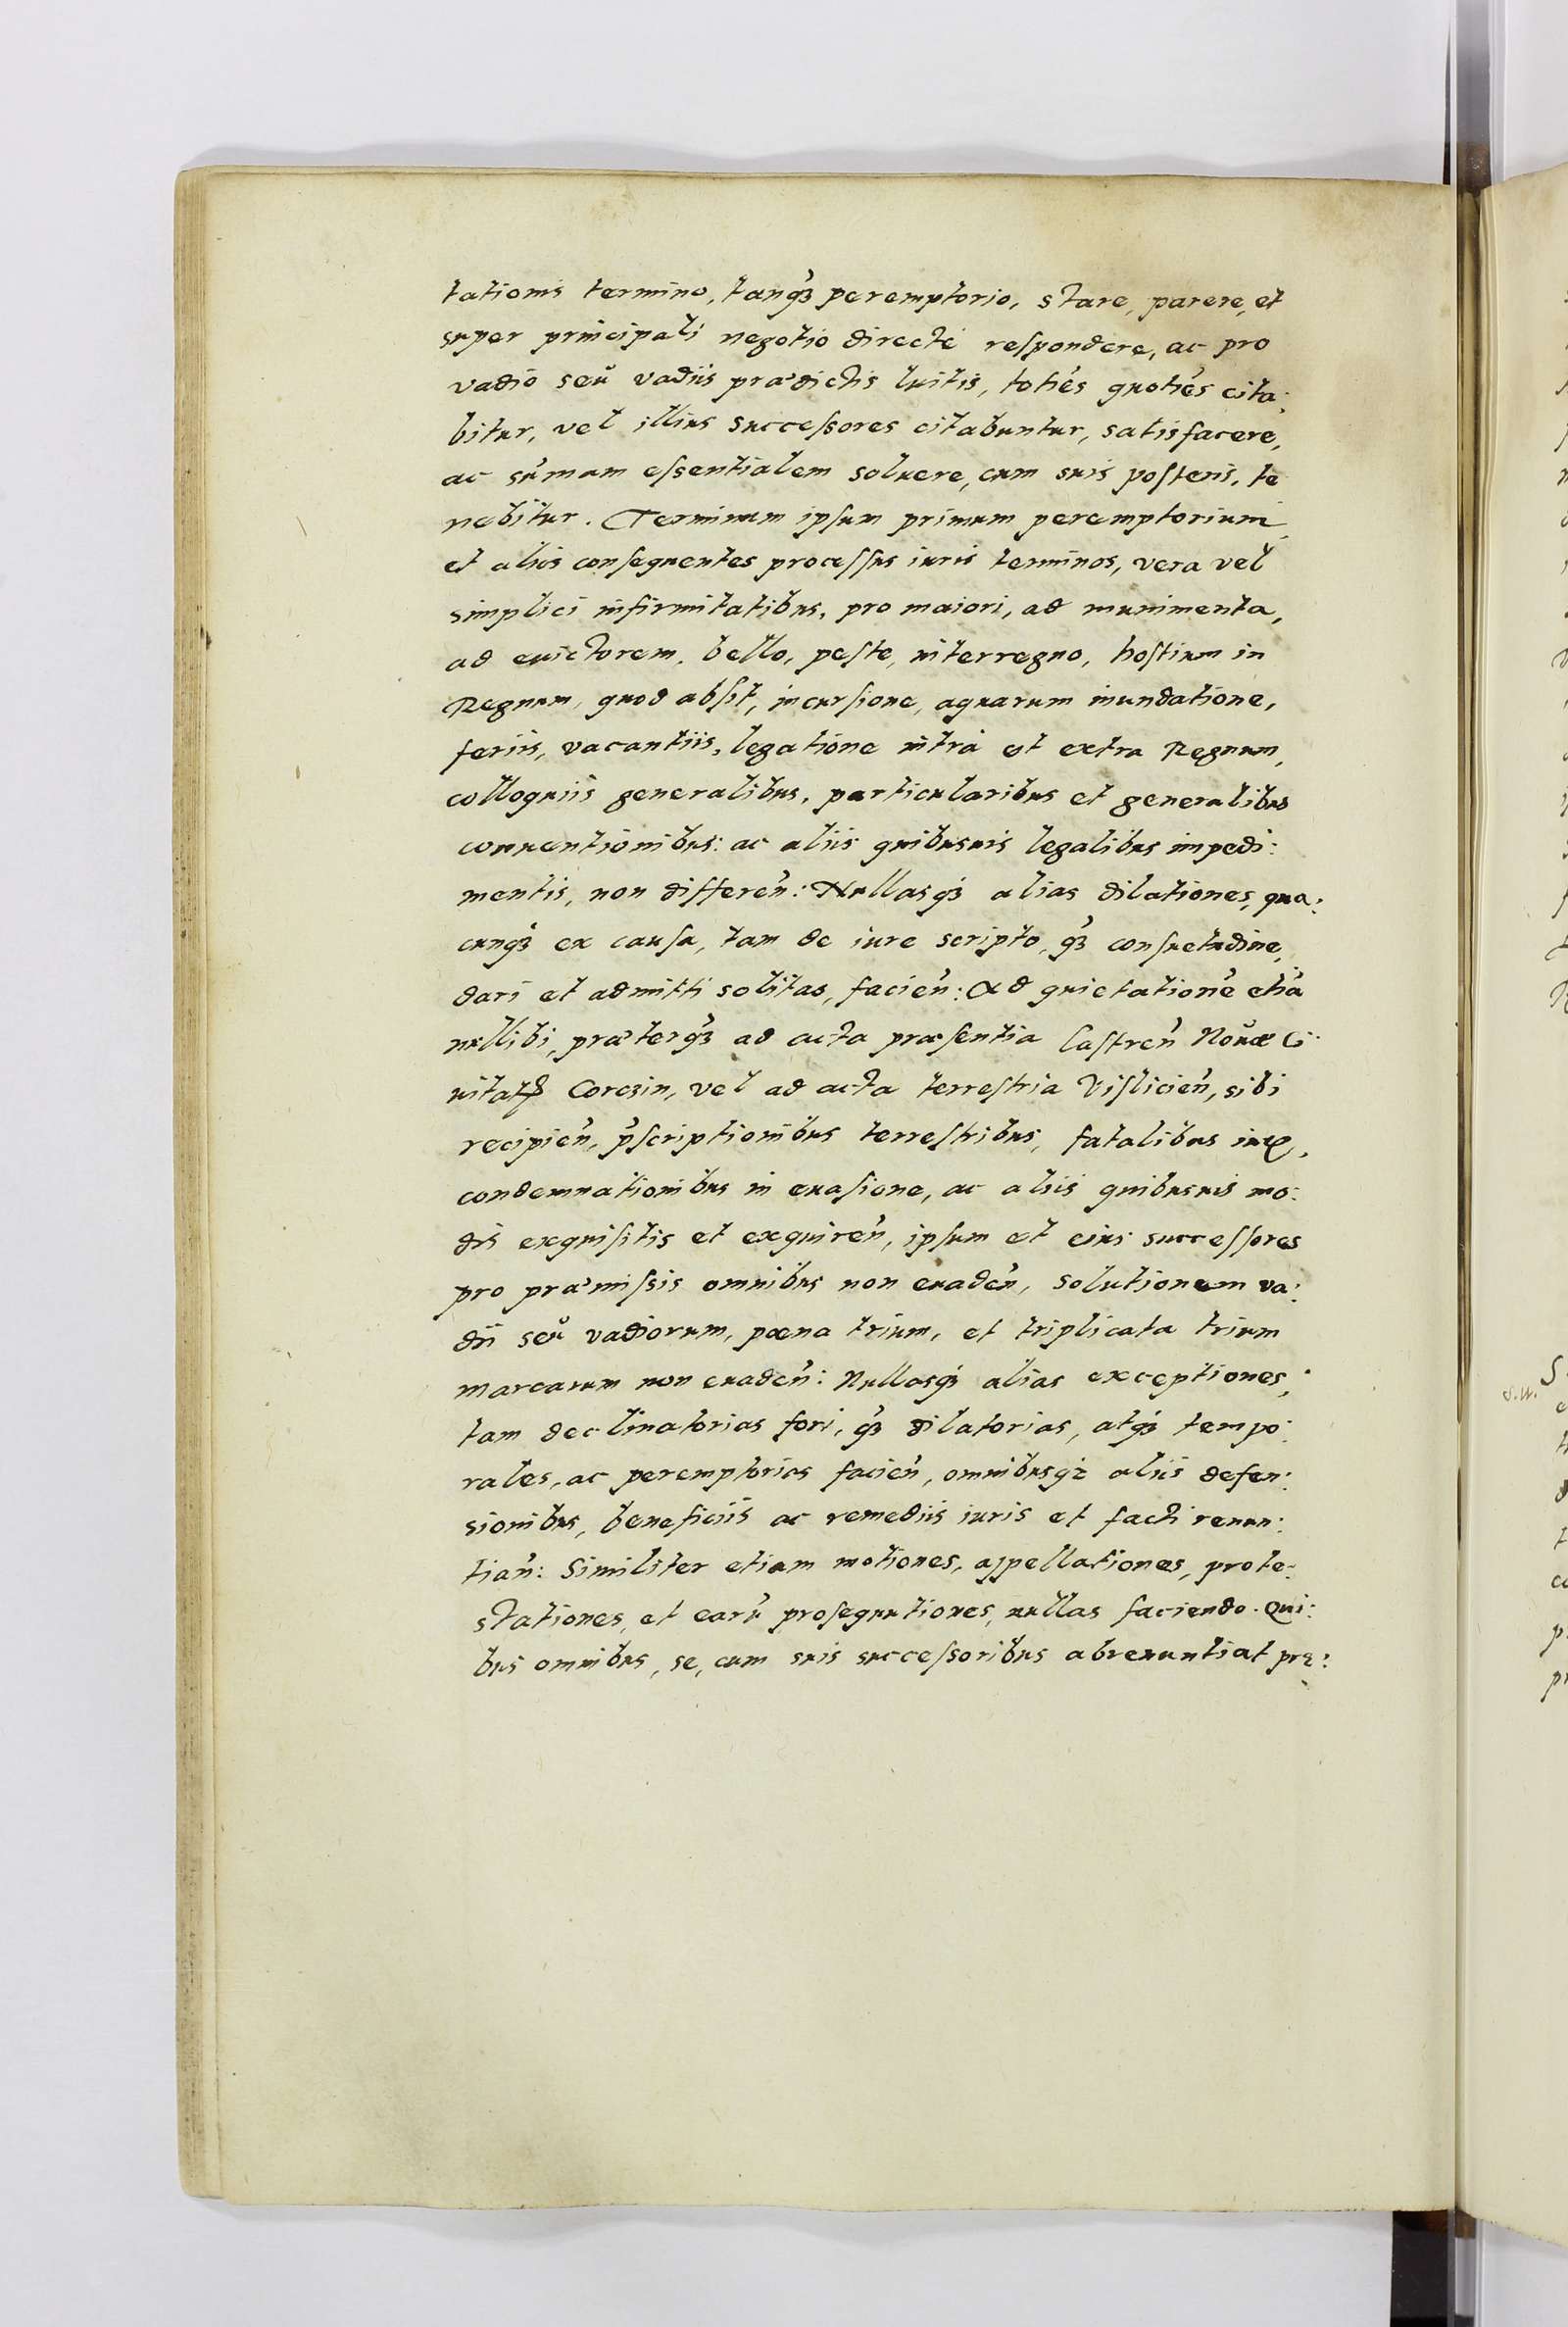 tationis termino, tanqȝ peremptorio, stare, parere, et
super principali negotio directè respondere, ac pro
vadio seu vadiis prædictis luitis, totiês quotiês cita:
bitur, vel illius successores citabuntur, satisfacere,
ac sūmam essentialem soluere, cum suis posteris, te
nebitur. Terminum ipsum primum peremptorium
et alios consequentes processus iuris terminos, vera vel
simplici infirmitatibus, pro maiori, ad munimenta,
ad euictorem, bello, peste, interregno, hostium in
Regnum, quod absit, incursione, aquarum inundatione,
feriis, vacantiis, legatione intrà et extra Regnum,
colloquiis generalibus, particularibus et generalibus
conuentionibus: ac aliis quibusuis legalibus impedi:
mentis, non differeñ: Nullasqȝ alias dilationes, qua:
cunqȝ ex causa, tam de iure scripto, qȝ consuetudine,
dari et admitti solitas, facieñ: Ad quietationē etiā
nullibi, præterqȝ ad acta præsentia Castreñ Nouæ Ci:
uitatꝭ Corczin, vel ad acta terrestria Vislicieñ, sibi
recipieñ, p̄scriptionibus terrestribus, fatalibus iurꝭ,
condemnationibus in euasione, ac aliis quibusuis mo:
dis exquisitis et exquireñ, ipsum et eius successores
pro præmissis omnibus non euadeñ, solutionem va:
dii seu vadiorum, pœna trium, et triplicata trium
marcarum non euadeñ: Nullasqȝ alias exceptiones,
tam declinatorias fori, qȝ dilatorias, atqȝ tempo:
rales, ac peremptorias facieñ, omnibusqȝ aliis defen:
sionibus, beneficiis ac remediis iuris et facti renun:
tiañ: Similiter etiam motiones, appellationes, prote:
stationes, et earū prosequutiones, nullas faciendo. Qui:
bus omnibus, se, cum suis successoribus abrenuntiat præ:
s.w.